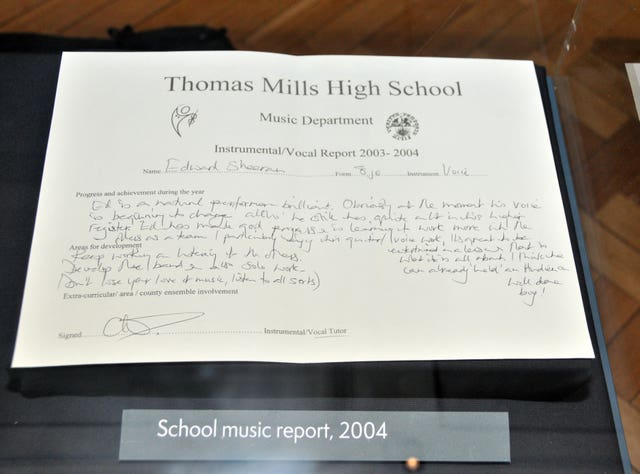 Thomas Mills High School
Music Department
Instrumental/Vocal Report 2003- 2004
Name Edward Sheeran Form Instrument Voice
Progress and achievement during the year
Ed is a natural performer brilliant. Obviously at the moment his voice
is beginning to change altho' he still has quite a bit in his higher
register Ed has made good progress is learning to work more with the
others as a team I particularly enjoy his guitar/voice work, It's great to be
entertained in a lesson that is
what it's all about. I think he
can already 'hold' an Audience
Well done
boy!
Areas for development
Keep working on intensity of the
Develop the band & also solo work
(Don't lose your love of music, listen to all sorts)
Extra-curricular/ area / county ensemble involvement
Signed Instrumental/Vocal Tutor
School music report, 2004